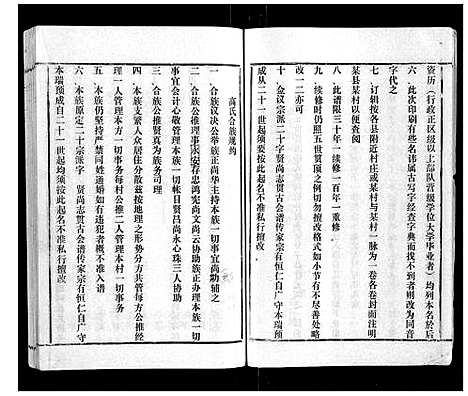 资历（行政正区级以上部队晋级学位大学毕业者）均列本名於后
六 此次印刷有些名讳属古写字经查字典而找不到者则改为同音
字代之
七 订辑按各县附近村庄或某村与某村一脉为一卷各卷封面注明
某县某村以便查阅
八 此谱限三十年一续修一百年一重修
九 续修时仍照五世贯顶之例切勿擅改格式如小节有不尽善处略
改一二亦可
十 金议宗派二十字贤尚志贯古会谱传家宗有恒仁自广守本瑞预
成从二十一世起均须按此起名不准私行擅改
高氏合族规约
一 合族议决公举族正尚华主持本族一切事宜尚勤辅之
二 合族公推理事永安存忠鸿宪尚文尚云协助族正办理本族一切
事宜会计心敬管理本族一切帐目贤昌尚永心珠三人协助
三 合族公推贤真为族务司理
四 本族支繁人众居住分散兹按地理之形势分方共管每方公推经
理一人管理本方一切事务每村公推二人管理本村一切事务
五 本族仍坚持严禁同姓通婚如有违犯者概不准入谱
六 本族原定二十宗派字 贤尚志贯古会谱传家宗有恒仁自广守
本瑞预成自二十一世起均须按此起名不准私行擅改